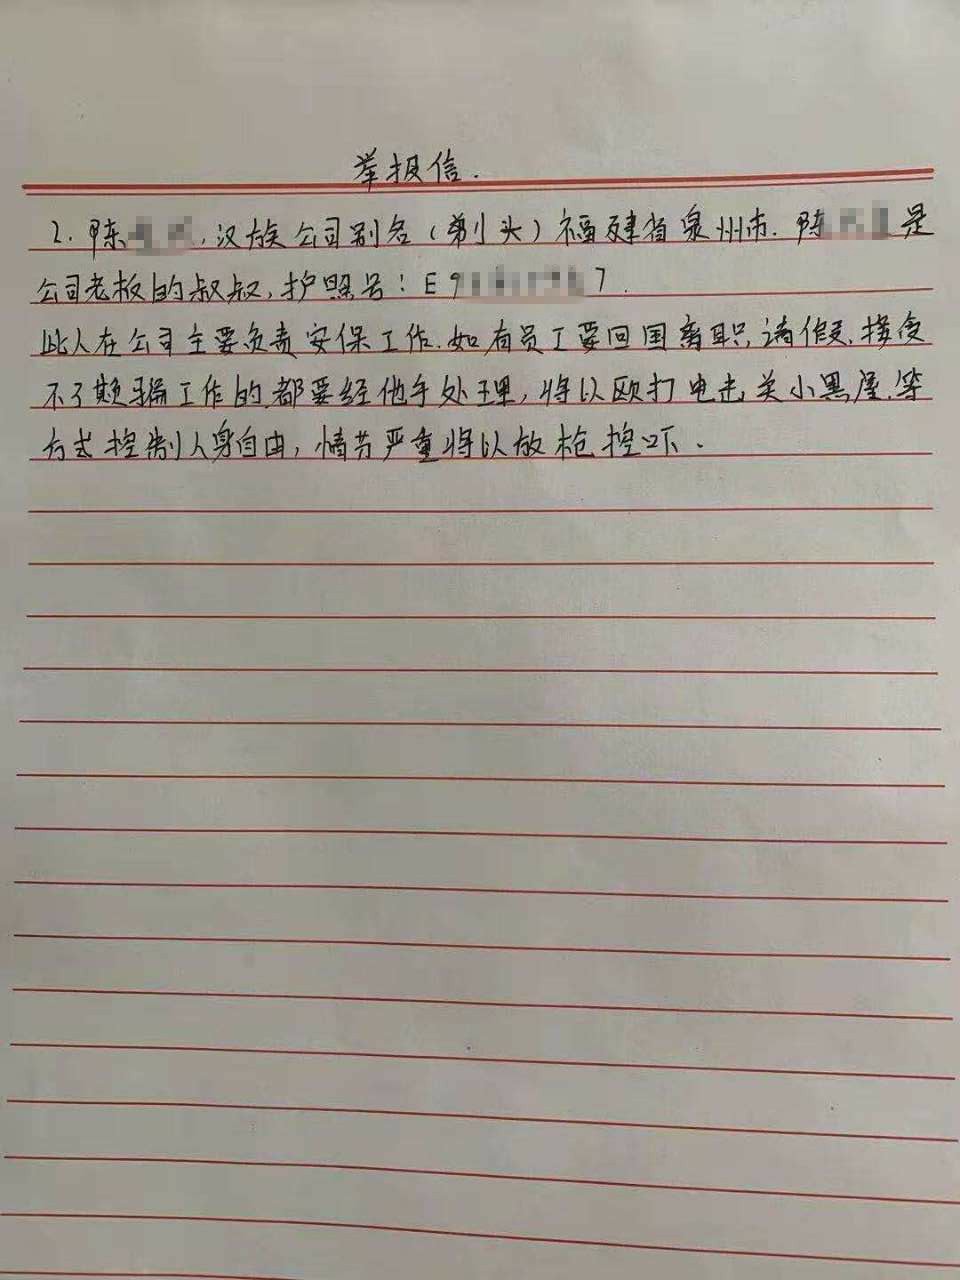 举报信.
2. 陈 , 汉族 公司别名 (剃头) 福建省泉州市. 陈 是
公司老板的叔叔, 护照号: E9 7.
此人在公司主要负责安保工作. 如有员工要回国离职, 请假, 接受
不了欺骗工作的都要经他手处理, 将以欧打电击关小黑屋.等
方式控制人身自由, 情节严重将以放枪控吓.